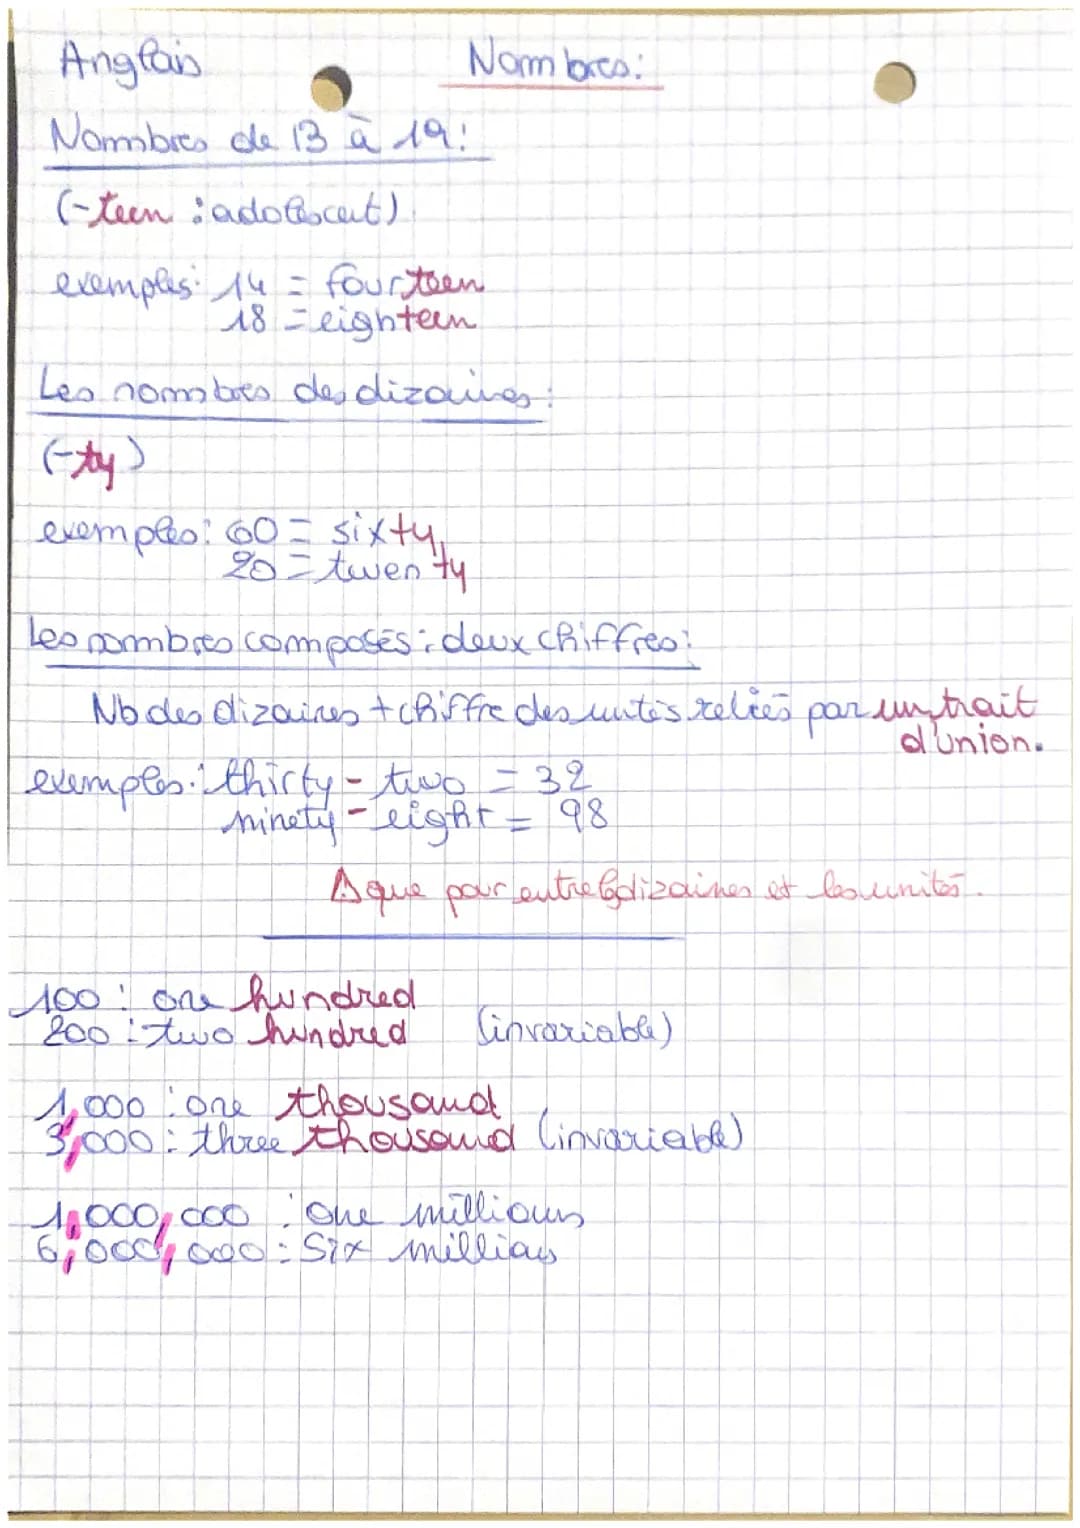 Anglais
Nombres:
Nombres de 13 à 19:
(-teen : adolescent)
exemples: 14 = fourteen
18 = eighteen
Les nombres des dizaines:
(-ty)
exemples: 60 = sixty
20 = twenty
Les nombres composés : deux chiffres:
Nb des dizaines + chiffre des unités reliés par un trait
d'union.
exemples: thirty-two = 32
ninety-eight = 98
⚠ que pour entre les dizaines et les unités.
100 : one hundred
200 : two hundred (invariable)
1,000 : one thousand
3,000 : three thousand (invariable)
1,000,000 : one millions
6,000,000 : Six millions